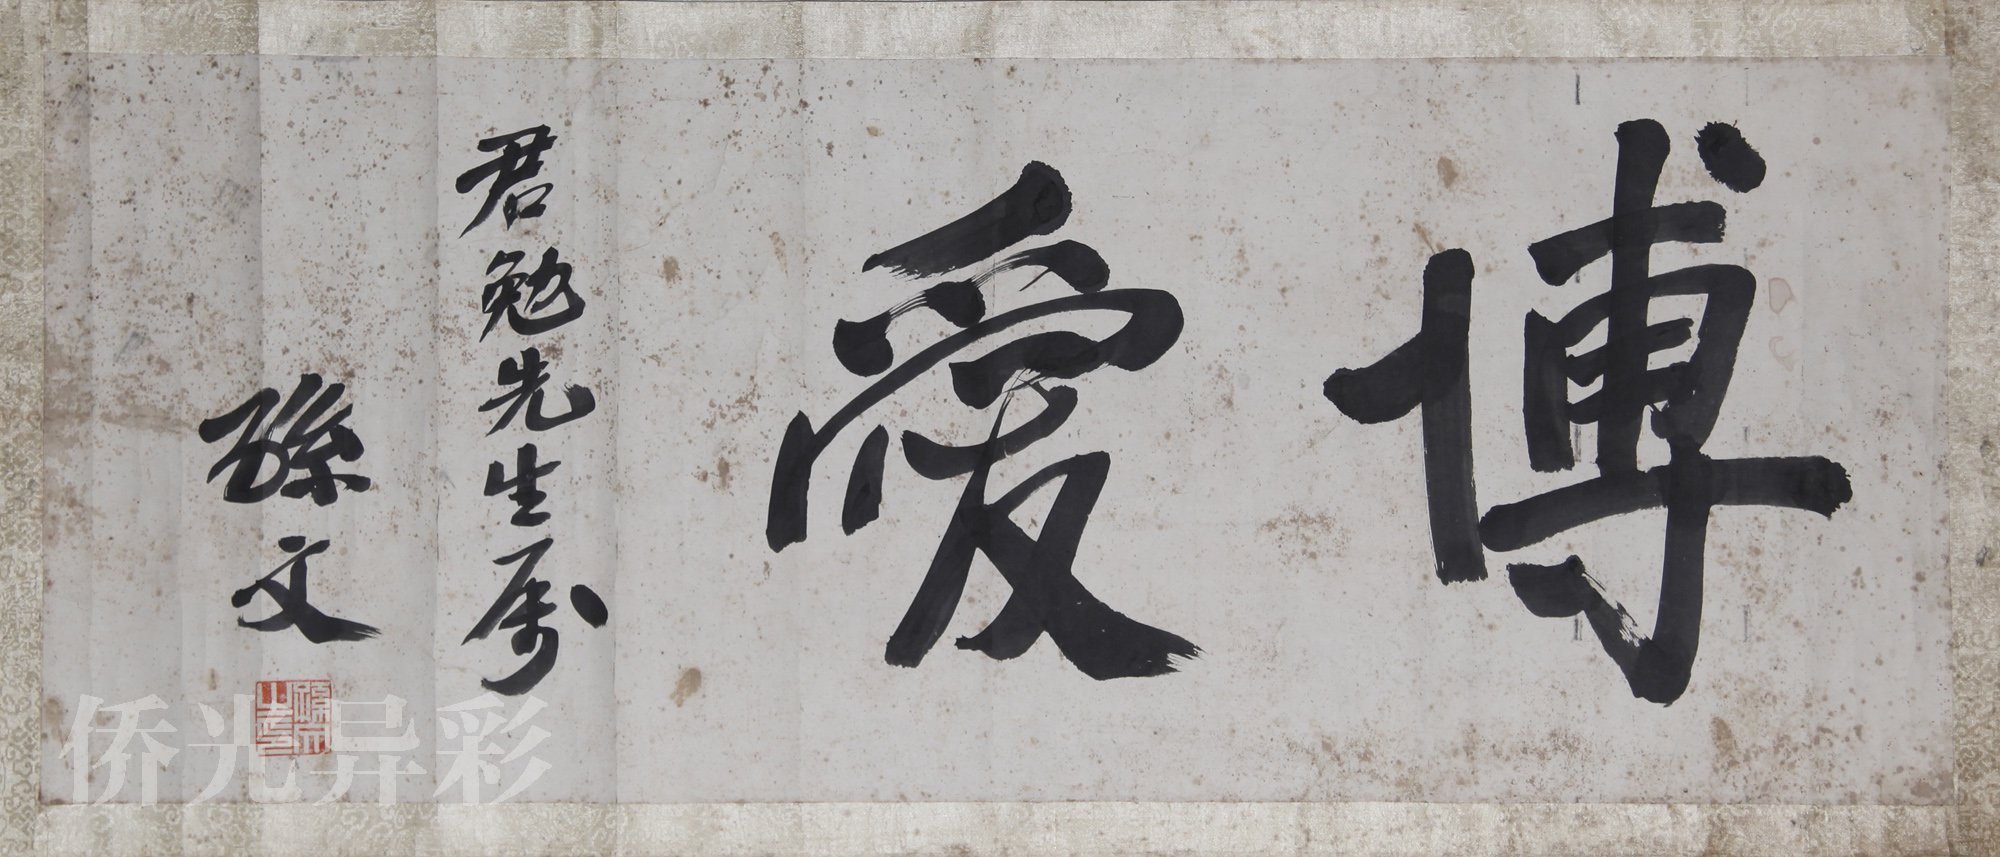 博愛
君勉先生属
孫文
孫文之印
侨光异彩